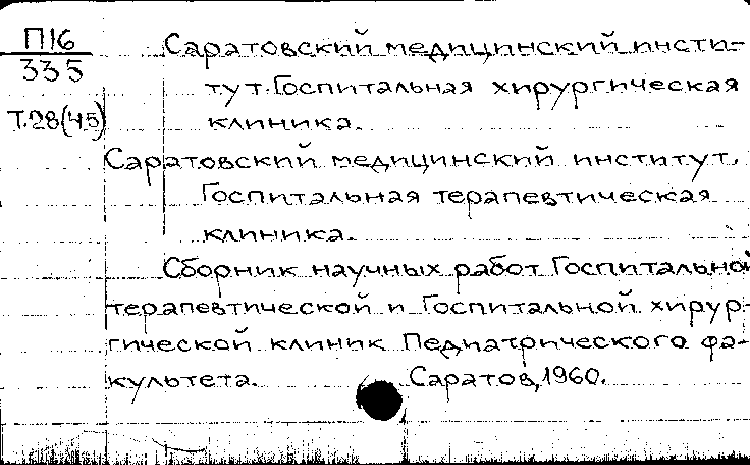 П16
335
Т.28(ч.5)
Саратовский медицинский инсти-
тут. Госпитальная хирургическая
клиника.
Саратовский медицинский институт.
Госпитальная терапевтическая
клиника.
Сборник научных работ Госпитальной
терапевтической и Госпитальной хирур-
гической клиник Педиатрического фа-
культета. Саратов, 1960.